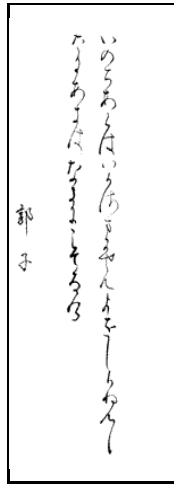 いのちあらはいかさまにせんよをしらぬむし
たにあきはなきにこそなけ
郭子